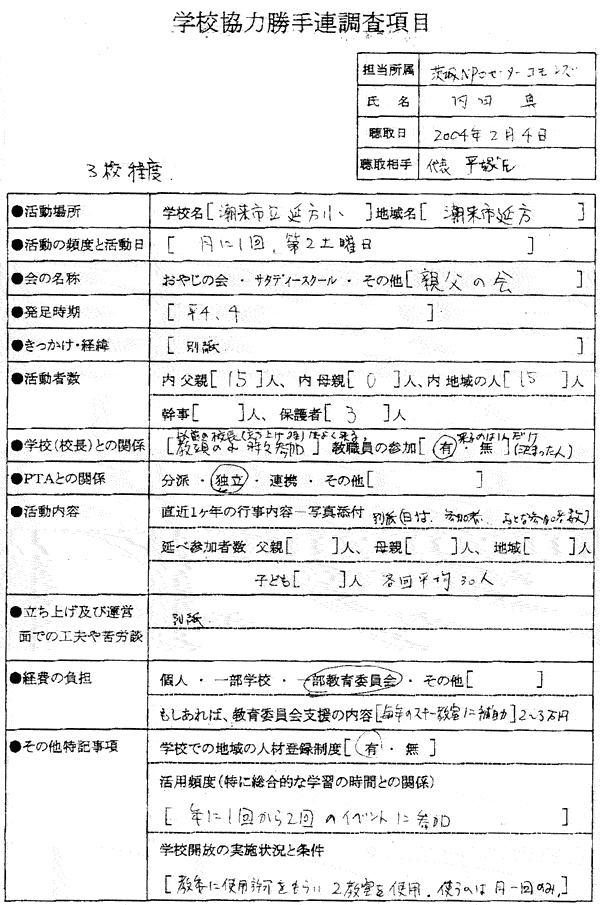 学校協力勝手連調査項目
担当所属 茨城NPOセンターコモンズ
氏 名
聴取日 2004年2月4日
聴取相手 代表 平塚氏
3校程度.
●活動場所 学校名[潮来市立延方小]地域名[潮来市延方]
●活動の頻度と活動日 [月に1回,第2土曜日]
●会の名称 おやじの会 ・ サタディースクール ・ その他[親父の会]
●発足時期 [平4、4]
●きっかけ・経緯 [別紙]
●活動者数 内 父親[15]人、内 母親[0]人、内 地域の人[15]人
幹事[ ]人、保護者[3]人
以前の校長(立ち上げ時)はよく来る。 来るのは1人だけ
●学校(校長)との関係 [教頭のみ時々参加] 教職員の参加[有・無](決まった人)
●PTAとの関係 分派 ・ 独立 ・ 連携 ・ その他[ ]
●活動内容 直近1ヶ年の行事内容―写真添付 別紙(日付、参加者、おとな参加者数)
延べ参加者数 父親[ ]人、母親[ ]人、地域[ ]人
子ども[ ]人 各回平均30人
●立ち上げ及び運営 別紙
面での工夫や苦労談
●経費の負担 個人 ・ 一部学校 ・ 一部教育委員会 ・ その他[ ]
もしあれば、教育委員会支援の内容[毎年のスキー教室に補助]2~3万円
●その他特記事項 学校での地域の人材登録制度[有・無]
活用頻度(特に総合的な学習の時間との関係)
[年に1回から2回のイベントに参加]
学校開放の実施状況と条件
[教委に使用許可をもらい2教室を使用.使うのは月一回のみ.]